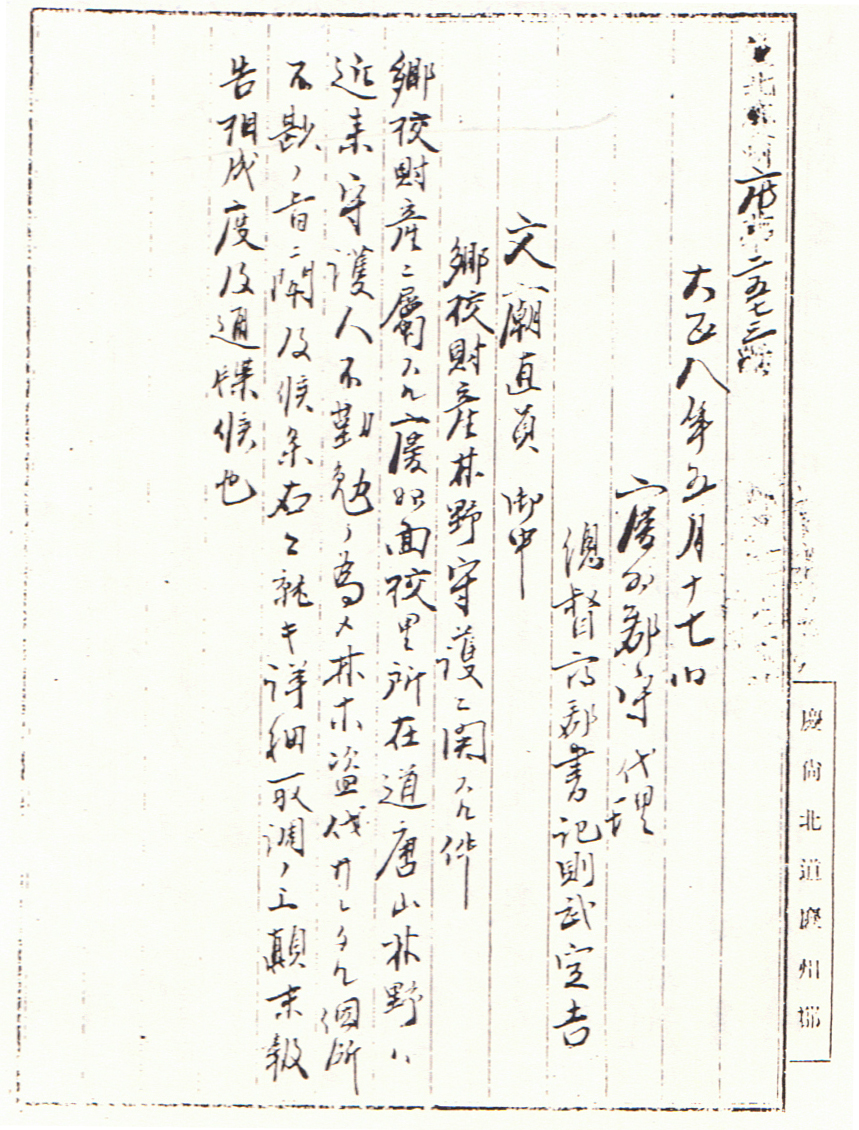 慶第二五七三號
大正八年五月十七日
慶州郡守代理
總督府郡書記則武定吉
文廟直員 御中
鄕校財産林野守護ニ關スル件
鄕校財産ニ屬スル慶州面校里所在道唐山林野ハ
近来守護人不勤勉ノ為メ林木盜伐サレタル個所
不尠ノ旨ニ聞及候条右ニ就キ詳細取調ノ上顚末報
告相成度及通牒候也
慶尙北道慶州郡